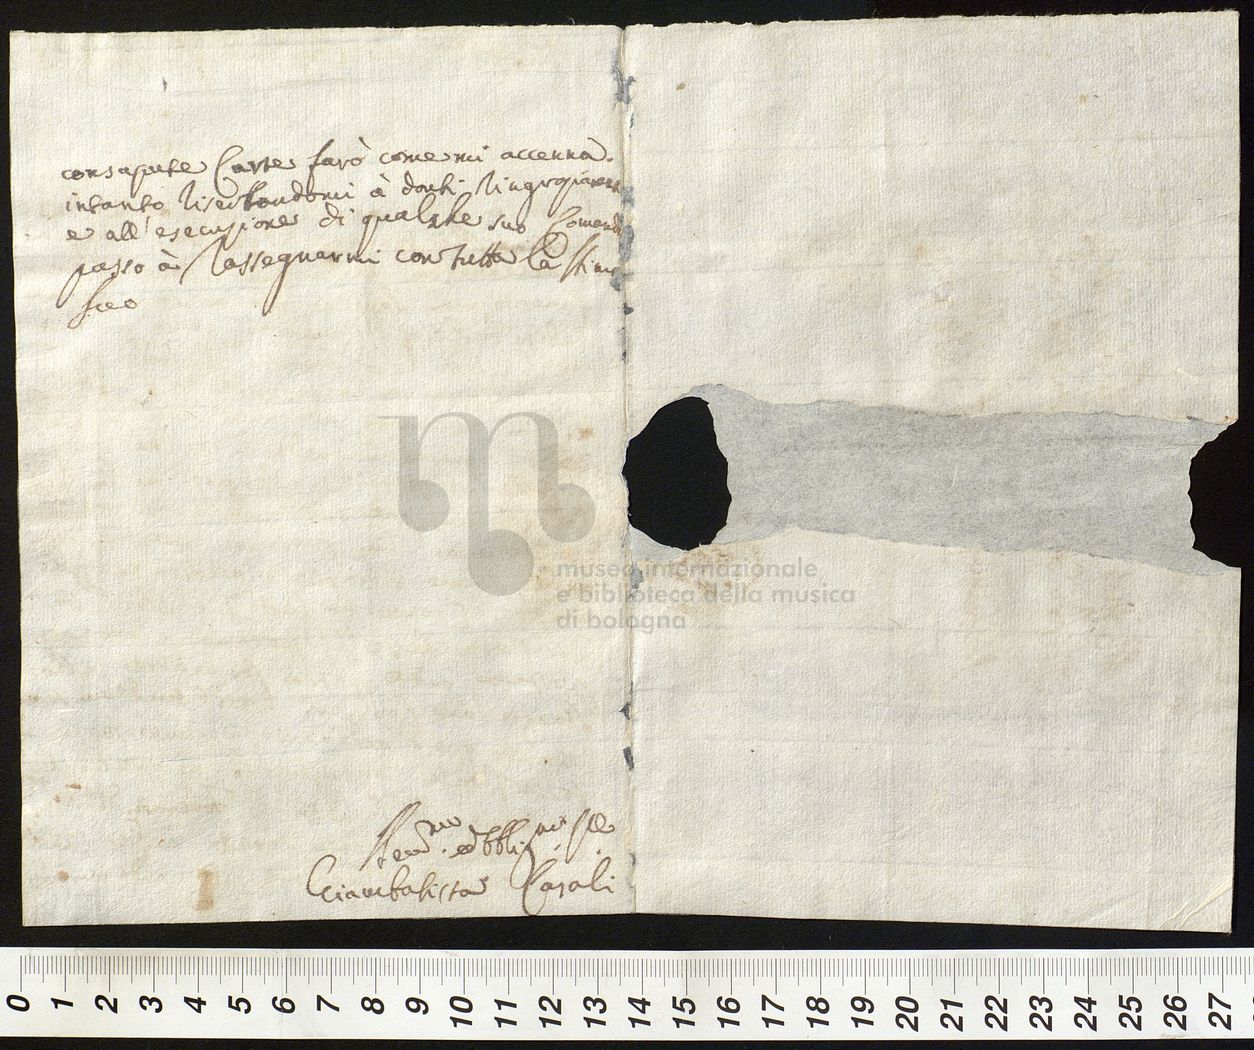 consapute Carte farò come mi accenna.
intanto riserbandomi à darli
e all'esecuzione di qualche suo Comando
passo à rassegnarmi con tutta la stima
museo internazionale
e biblioteca della musica
di bologna
Giambatista Casali
0 1 2 3 4 5 6 7 8 9 10 11 12 13 14 15 16 17 18 19 20 21 22 23 24 25 26 27